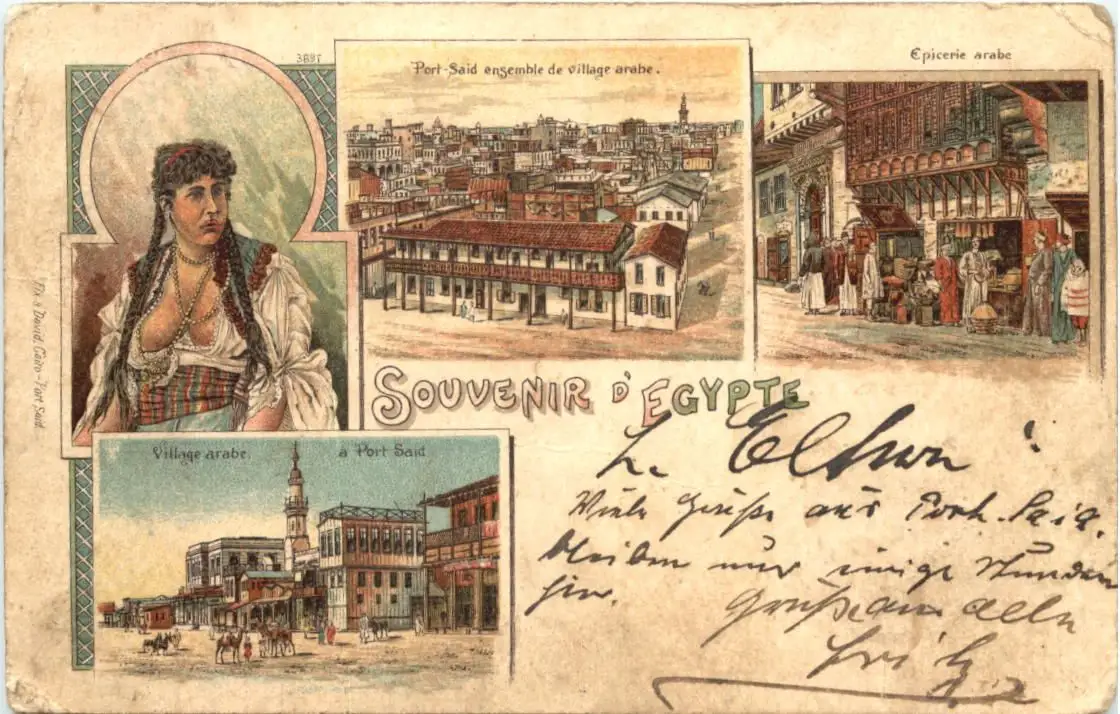 3897
Port-Said ensemble de village arabe.
Epicerie arabe
Fix & David, Cairo-Port Said.
SOUVENIR D'EGYPTE
Village arabe. à Port Said
L. Eltern!
Viele Grüße aus Port-Said.
bleiben nur einige Stunden
hier.
Gruß an alle
Fritz